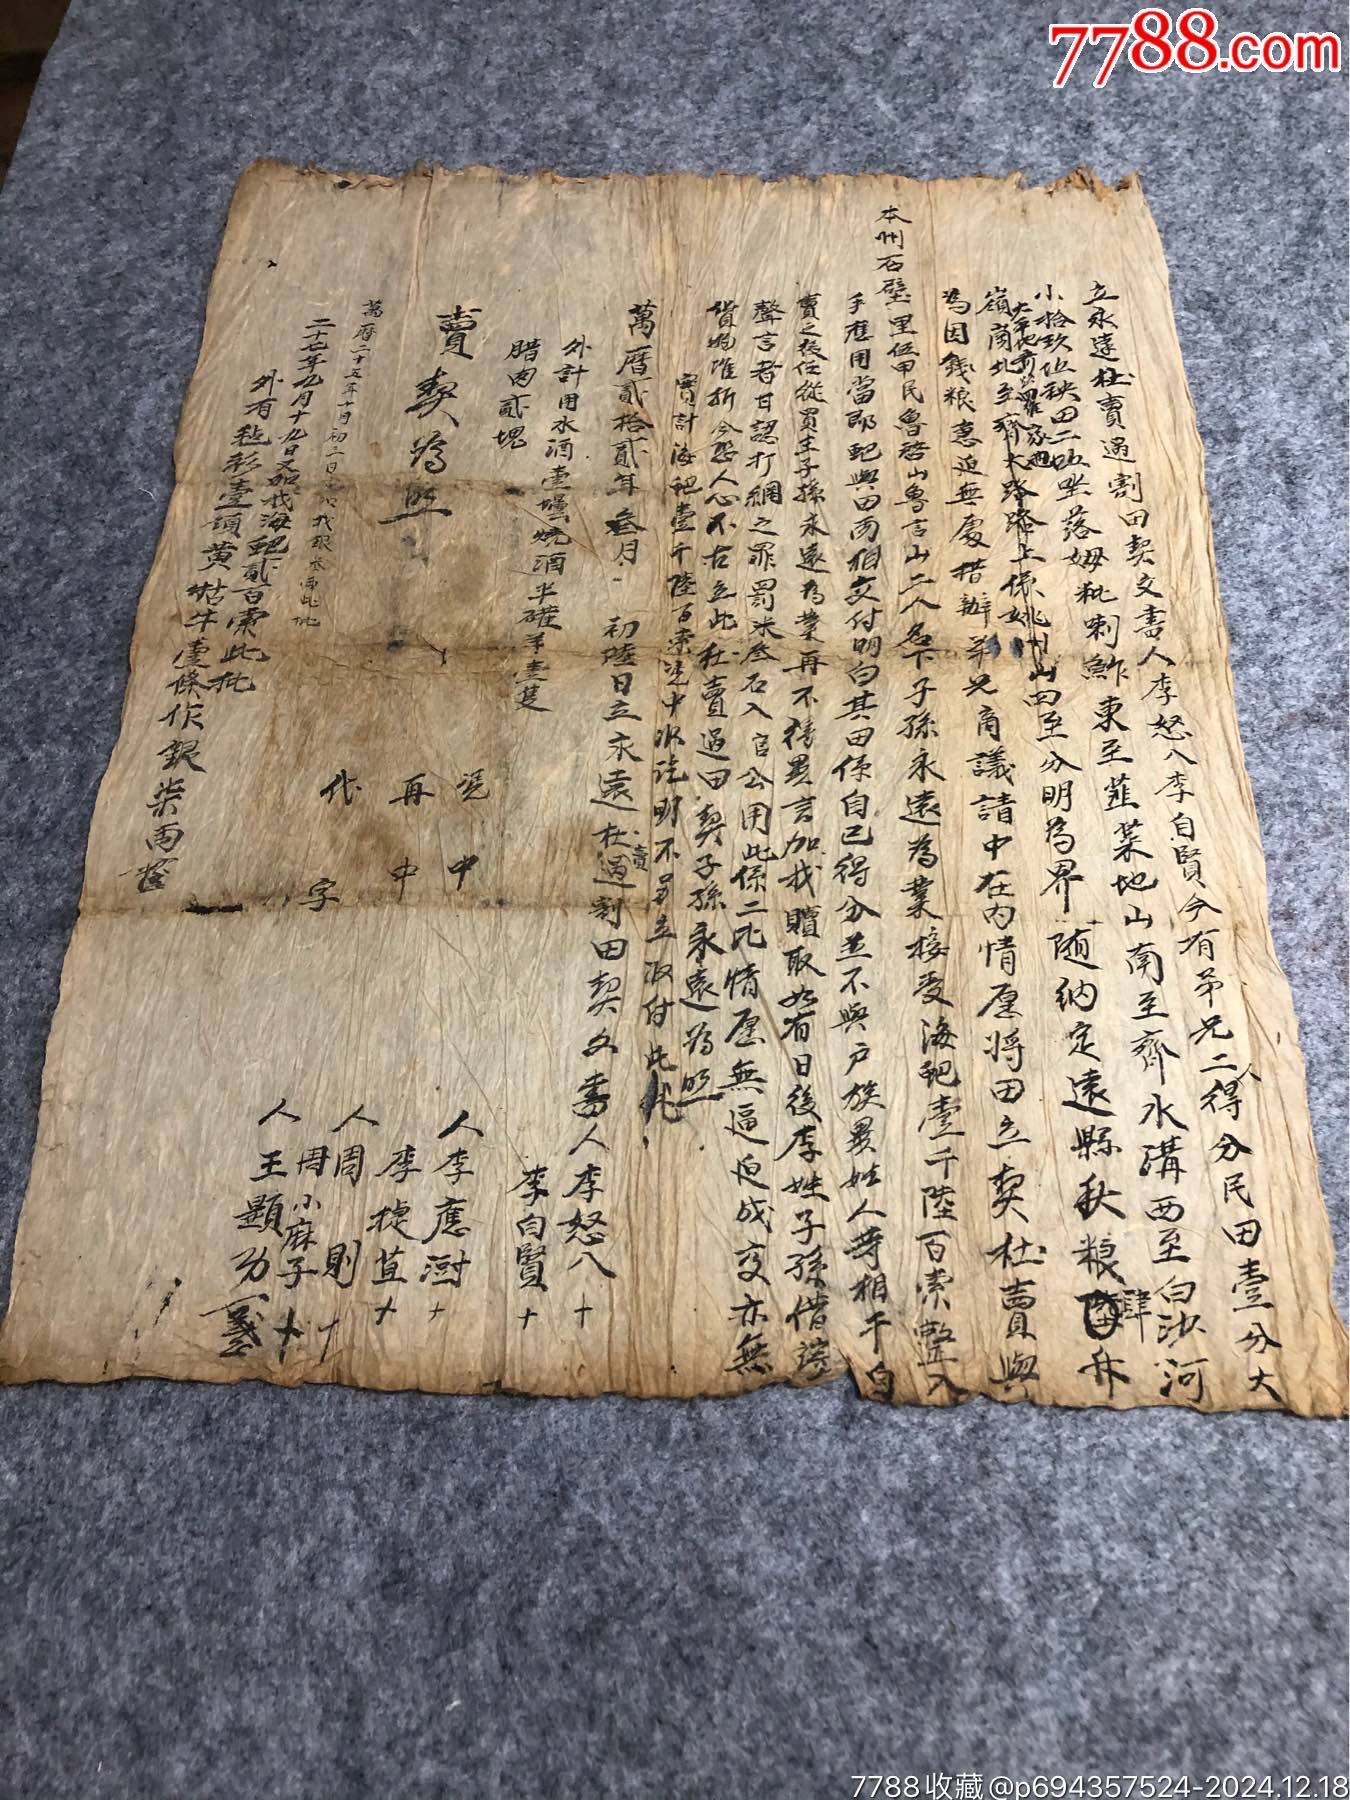 7788.com
立永遠杜賣過割田契文書人李怒八李自賢今有弟兄二人得分民田壹分大
小拾玖坵秧田二坵坐落姆毗喇鮓東至韮菜地山南至齊水溝西至白沙河
大平地前羅家
嶺南北至齊大路路上係姚山四至分明為界隨納定遠縣秋糧肆升
為因錢糧急迫無處措辦弟兄商議請中在內情愿將田立契杜賣與
本州石壁里伍甲民魯啓山魯言山二人名下子孫永遠為業接受海𧵅壹千陸百索整入
手應用當即𧵅與田兩相交付明白其田係自己得分並不與戶族異姓人等相干自
賣之後任從買主子孫永遠為業再不得異言加找贖取如有日後李姓子孫借端
聲言者甘認打網之罪罰米叁石入官公用此係二比情愿無逼迫成交亦無
貨物准折今恐人心不古立此杜賣過田契子孫永遠為照
實計海𧵅壹千陸百索凴中收訖明不另立收付此批
萬曆貳拾貳年叁月初陸日立永遠杜賣過割田契文書人李怒八十
李自賢十
外計用水酒壹罈燒酒半礶羊壹隻
腊肉貳塊
凴中人李應澍十
李椘苴十
再中人周則十
周小麻子十
代字人王顯功
賣契為照
萬曆二十五年十月初二日加找銀叁兩此批
二十七年九月十九日又加找海𧵅貳百索此批
外有毡衫壹領黃牯牛壹條作銀柒兩
7788收藏@p694357524-2024.12.18